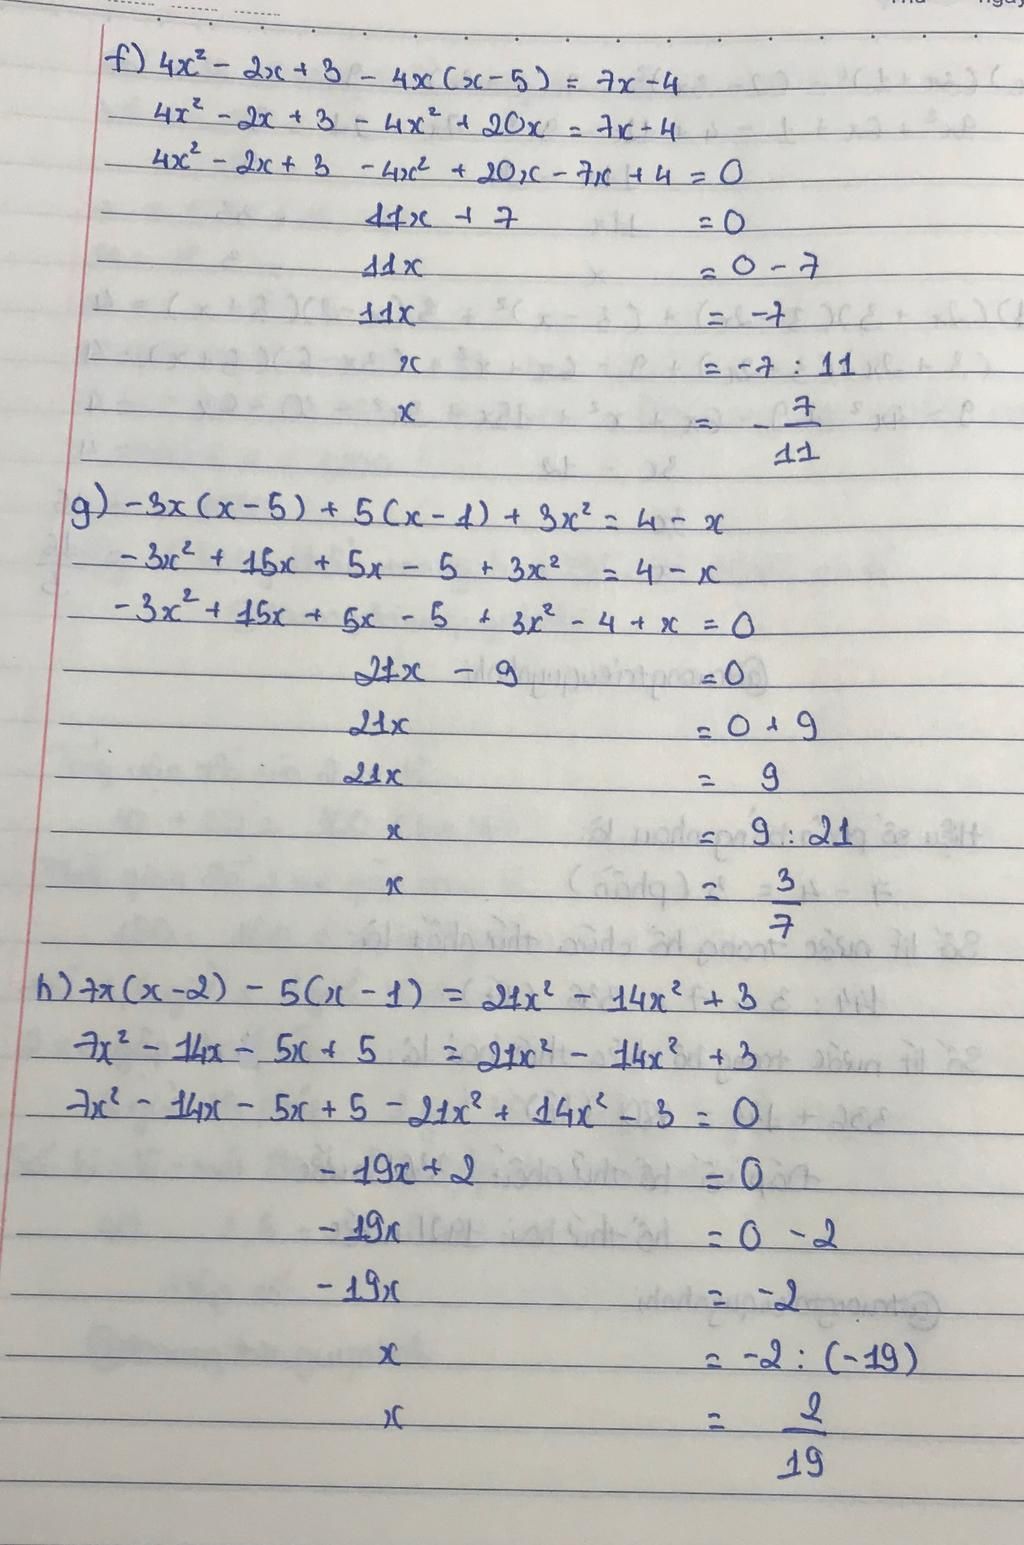 f) 4x² - 2x + 3 - 4x(x-5) = 7x-4
4x² - 2x + 3 - 4x² + 20x = 7x-4
4x² - 2x + 3 - 4x² + 20x - 7x + 4 = 0
11x + 7 = 0
11x = 0 - 7
11x = -7
x = -7 : 11
x = - 7/11
g) -3x(x-5) + 5(x-1) + 3x² = 4 - x
-3x² + 15x + 5x - 5 + 3x² = 4 - x
-3x² + 15x + 5x - 5 + 3x² - 4 + x = 0
21x - 9 = 0
21x = 0 + 9
21x = 9
x = 9 : 21
x = 3/7
h) 7x(x-2) - 5(x-1) = 21x² - 14x² + 3
7x² - 14x - 5x + 5 = 21x² - 14x² + 3
7x² - 14x - 5x + 5 - 21x² + 14x² - 3 = 0
-19x + 2 = 0
-19x = 0 - 2
-19x = -2
x = -2 : (-19)
x = 2/19